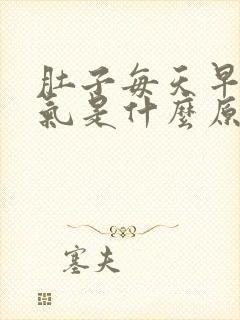 肚子每天早
氣是什麼原
塞夫